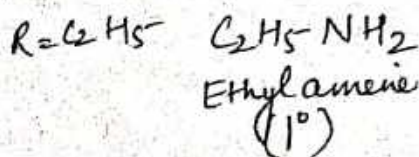 R=C₂H₅- C₂H₅-NH₂
Ethylameine
(1°)